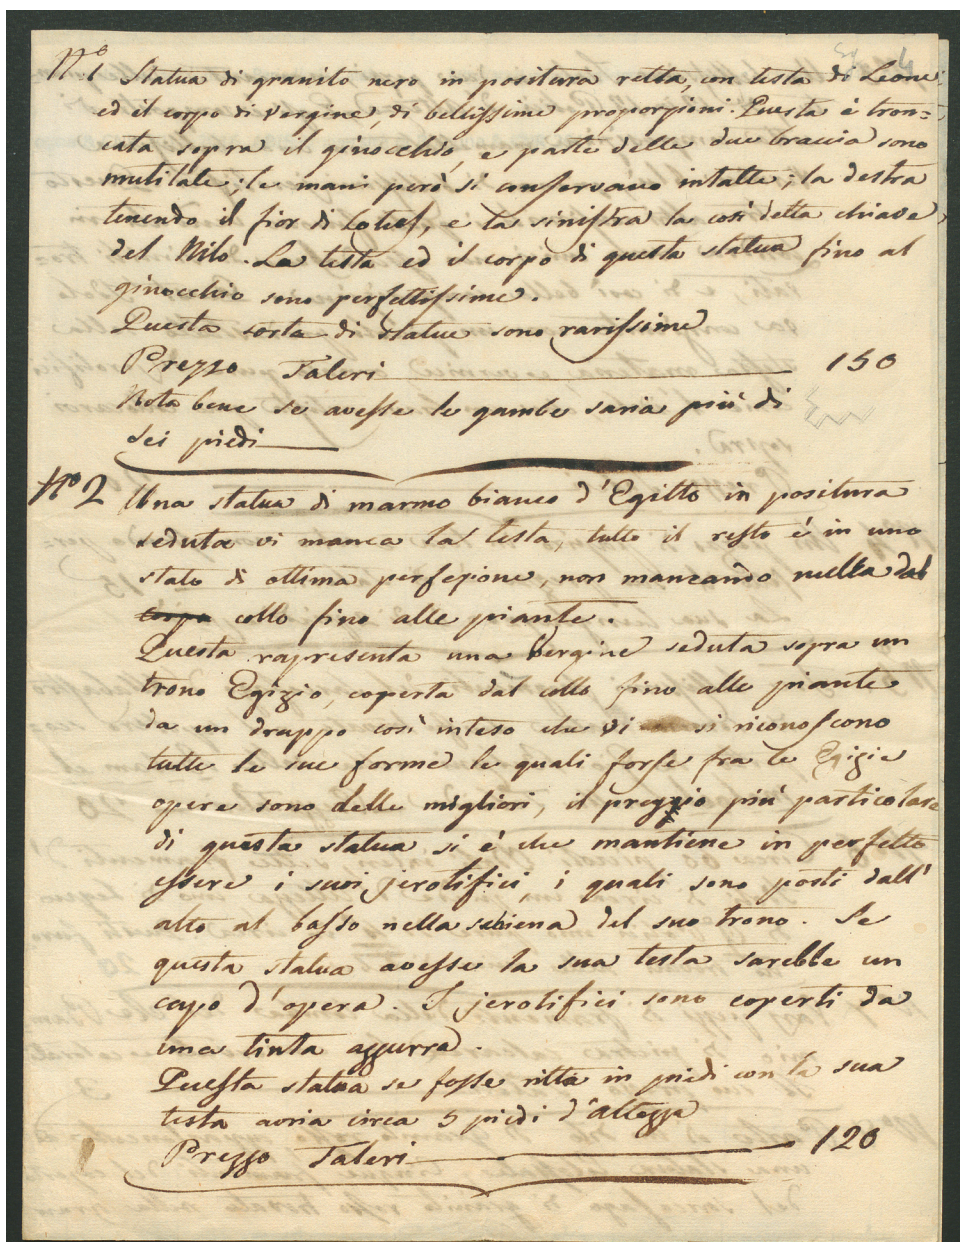 N.º 1 Statua di granito nero in positura retta, con testa di Leone
ed il corpo di vergine, di bellissime proporzioni. Questa è tron=
cata sopra il ginocchio, e parte delle due braccia sono
mutilate; le mani però si conservano intatte; la destra
tenendo il fior di Lotus, e la sinistra la così detta chiave
del Nilo. La testa ed il corpo di questa statua fino al
ginocchio sono perfettissime.
Questa sorta di statue sono rarissime
Prezzo Taleri 150
Nota bene se avesse le gambe saria più di
sei piedi
Nº 2 Una statua di marmo bianco d'Egitto in positura
seduta vi manca la testa, tutto il resto è in uno
stato di ottima perfezione, non mancando nulla dal
corpo collo fino alle piante.
Questa rapresenta una Vergine seduta sopra un
trono Egizio, coperta dal collo fino alle piante
da un drappo così inteso che vi si riconoscono
tutte le sue forme le quali forse fra le Egizie
opere sono delle migliori, il preggio più particolare
di questa statua si è che mantiene in perfetto
essere i suoi jerolifici, i quali sono posti dall'
alto al basso nella schiena del suo trono. Se
questa statua avesse la sua testa sarebbe un
capo d'opera. I jerolifici sono coperti da
una tinta azzurra.
Questa statua se fosse ritta in piedi con la sua
testa avria circa 5 piedi d'altezza
Prezzo Taleri 120